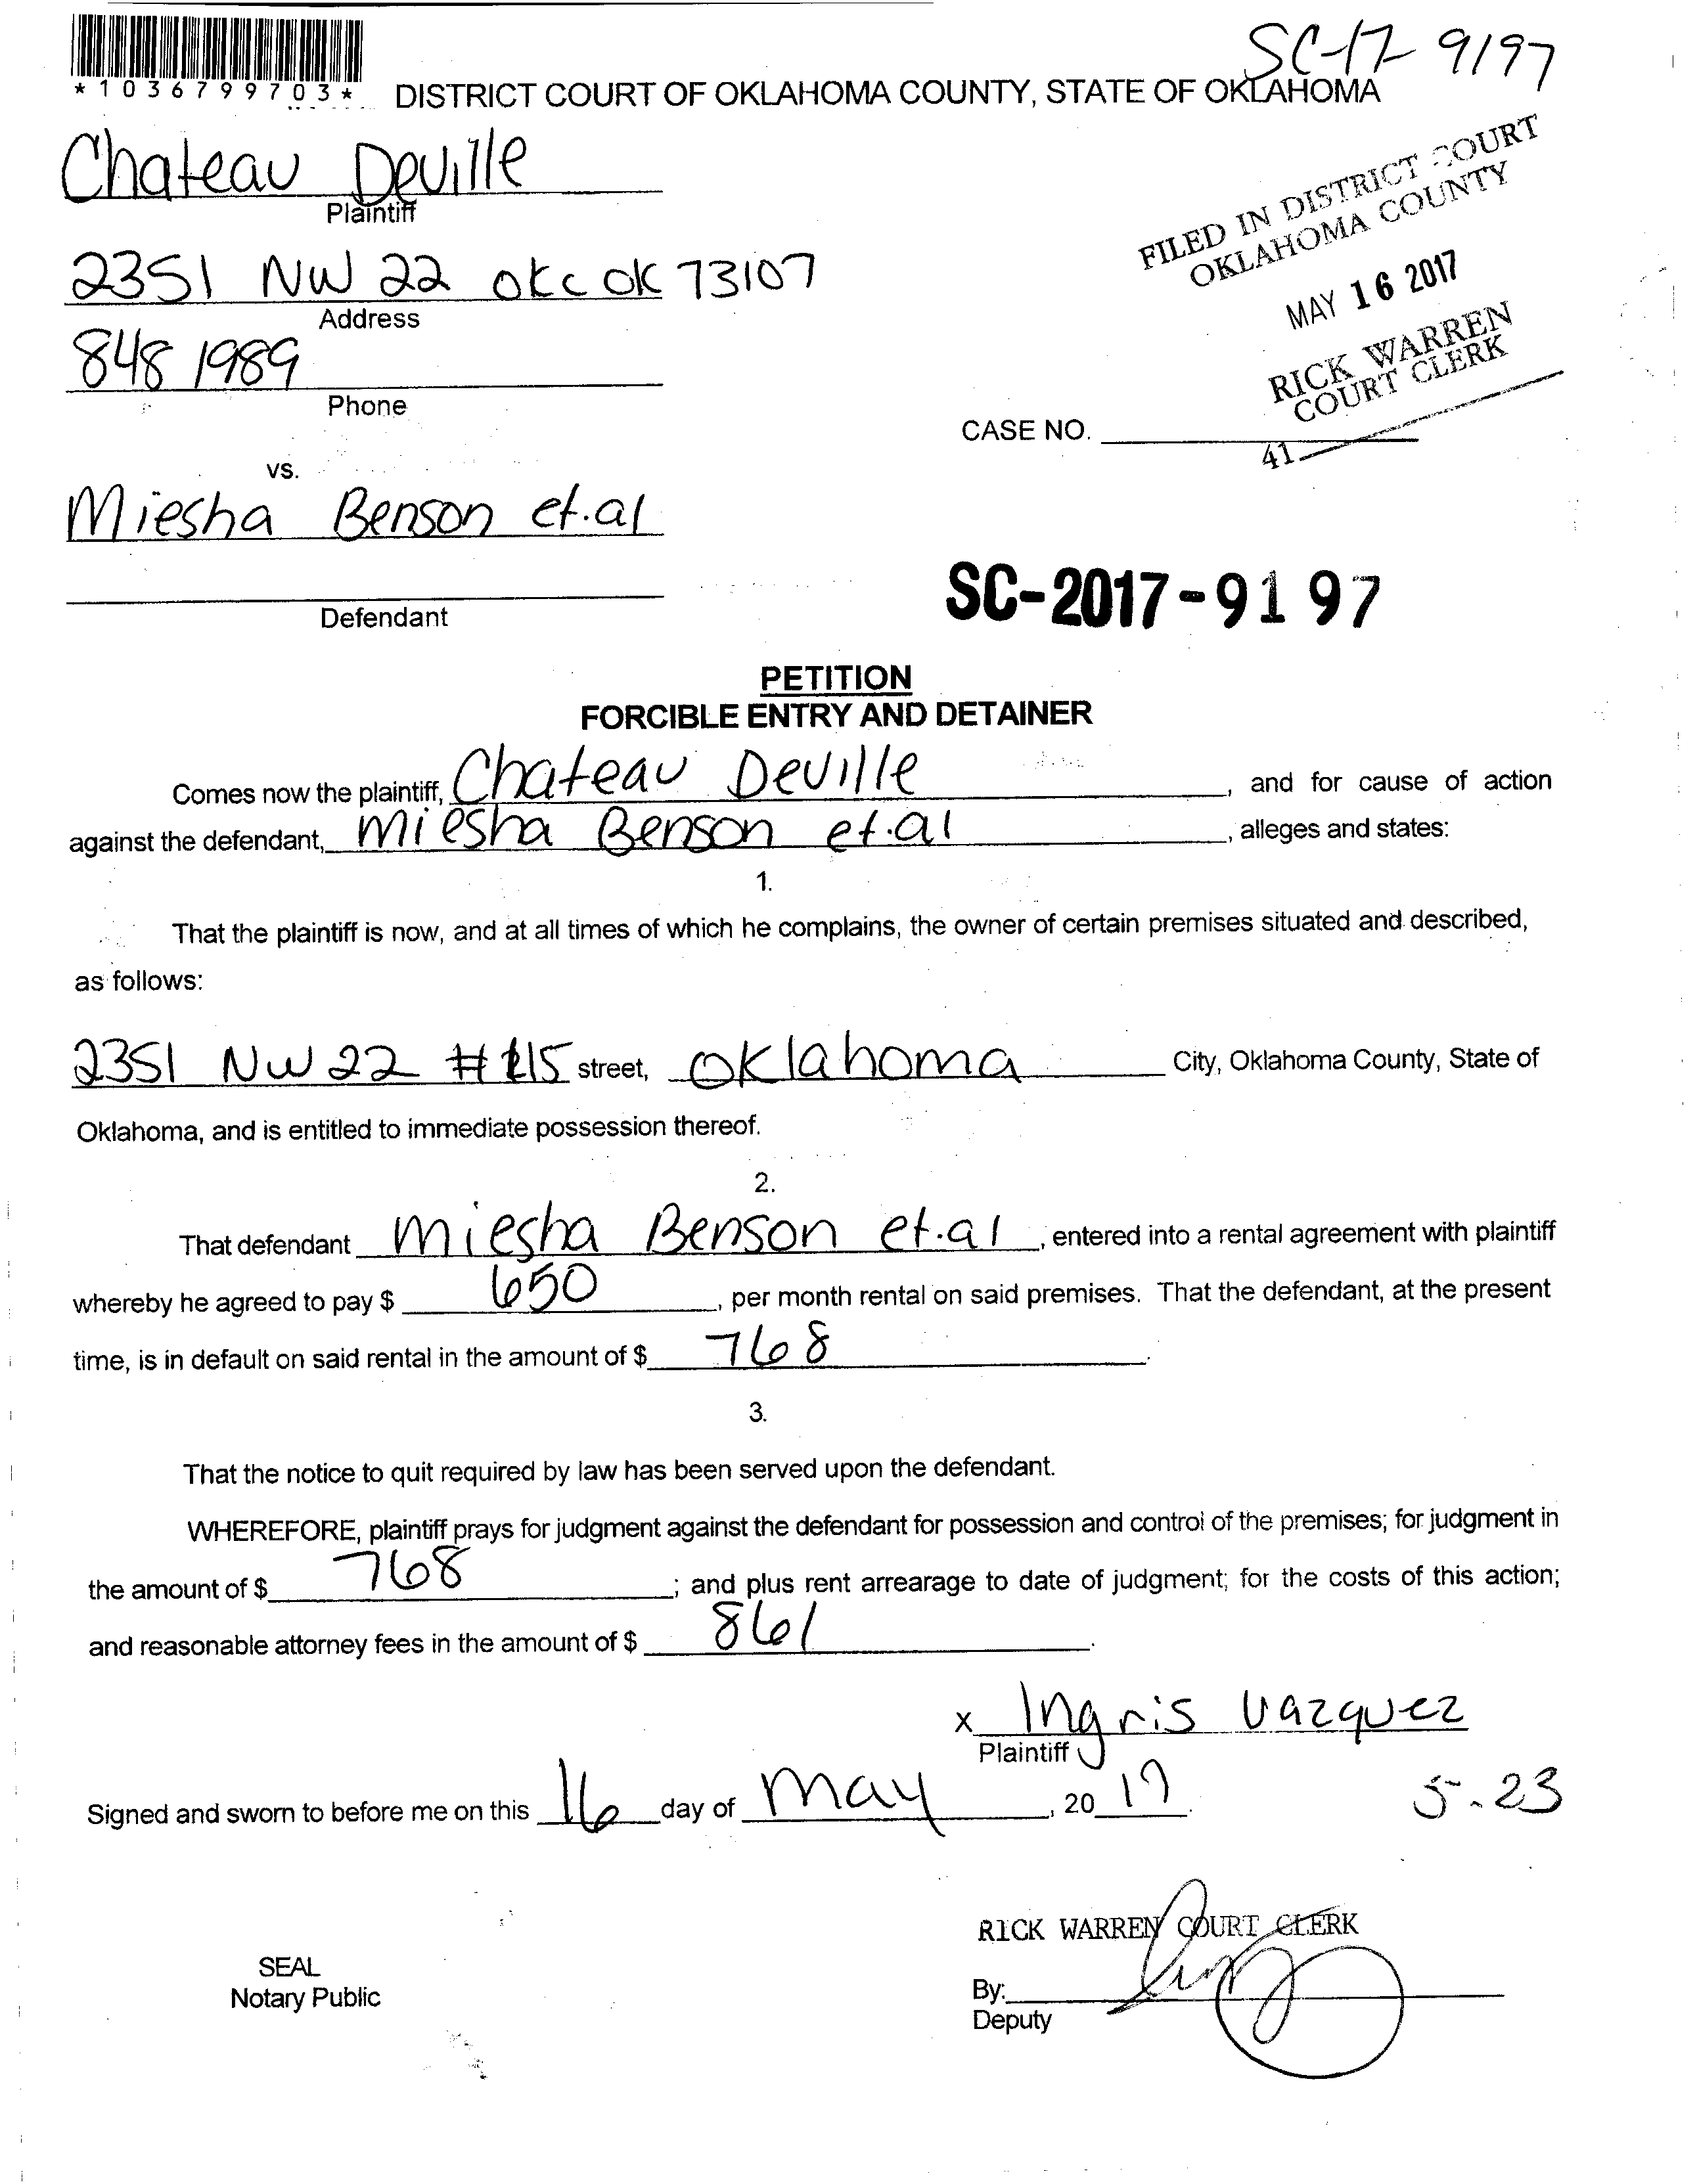 SC-17-9197
*1036799703*
DISTRICT COURT OF OKLAHOMA COUNTY, STATE OF OKLAHOMA
Chateau Deville
Plaintiff
FILED IN DISTRICT COURT
OKLAHOMA COUNTY
2351 NW 22 OKC OK 73107
Address
MAY 16 2017
848 1989
Phone
RICK WARREN
COURT CLERK
CASE NO.
41
vs.
Miesha Benson et.al
Defendant
SC-2017-9197
PETITION
FORCIBLE ENTRY AND DETAINER
Comes now the plaintiff, Chateau Deville, and for cause of action
against the defendant, Miesha Benson et.al, alleges and states:
1.
That the plaintiff is now, and at all times of which he complains, the owner of certain premises situated and described,
as follows:
2351 NW 22 #115 street, Oklahoma City, Oklahoma County, State of
Oklahoma, and is entitled to immediate possession thereof.
2.
That defendant Miesha Benson et.al, entered into a rental agreement with plaintiff
whereby he agreed to pay $ 650, per month rental on said premises. That the defendant, at the present
time, is in default on said rental in the amount of $ 768.
3.
That the notice to quit required by law has been served upon the defendant.
WHEREFORE, plaintiff prays for judgment against the defendant for possession and control of the premises; for judgment in
the amount of $ 768; and plus rent arrearage to date of judgment; for the costs of this action;
and reasonable attorney fees in the amount of $ 861.
x Ingris Vazquez
Plaintiff
Signed and sworn to before me on this 16 day of May, 2017.
5-23
RICK WARREN COURT CLERK
SEAL
Notary Public
By:
Deputy